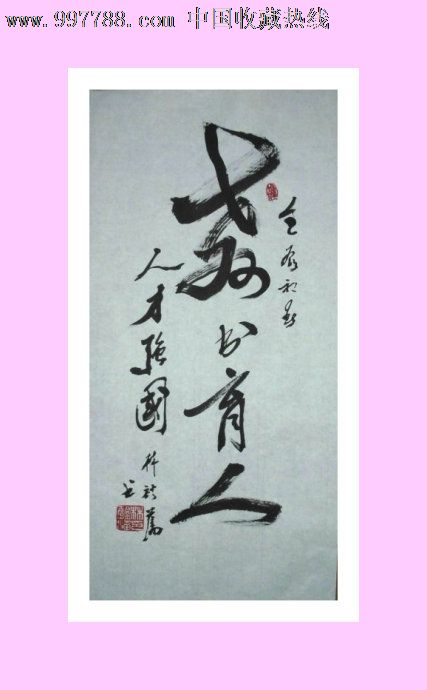 www.997788.com 中国收藏热线
壬辰初春
教书育人
人才强國